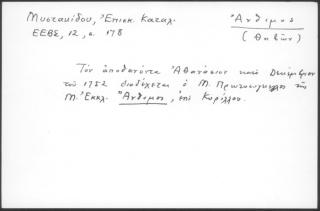 Μυστακίδου, Ἐπισκ. Καταλ.
Ἄνθιμος
ΕΕΒΣ, 12, σ. 178
(Θηβῶν)
Τὸν ἀποθανόντα Ἀθανάσιον κατὰ Δεκέμβριον
τοῦ 1752 διαδέχεται ὁ Μ. Πρωτοσύγκελλος τῆς
Μ. Ἐκκλ. Ἄνθιμος, ἐπὶ Κυρίλλου.